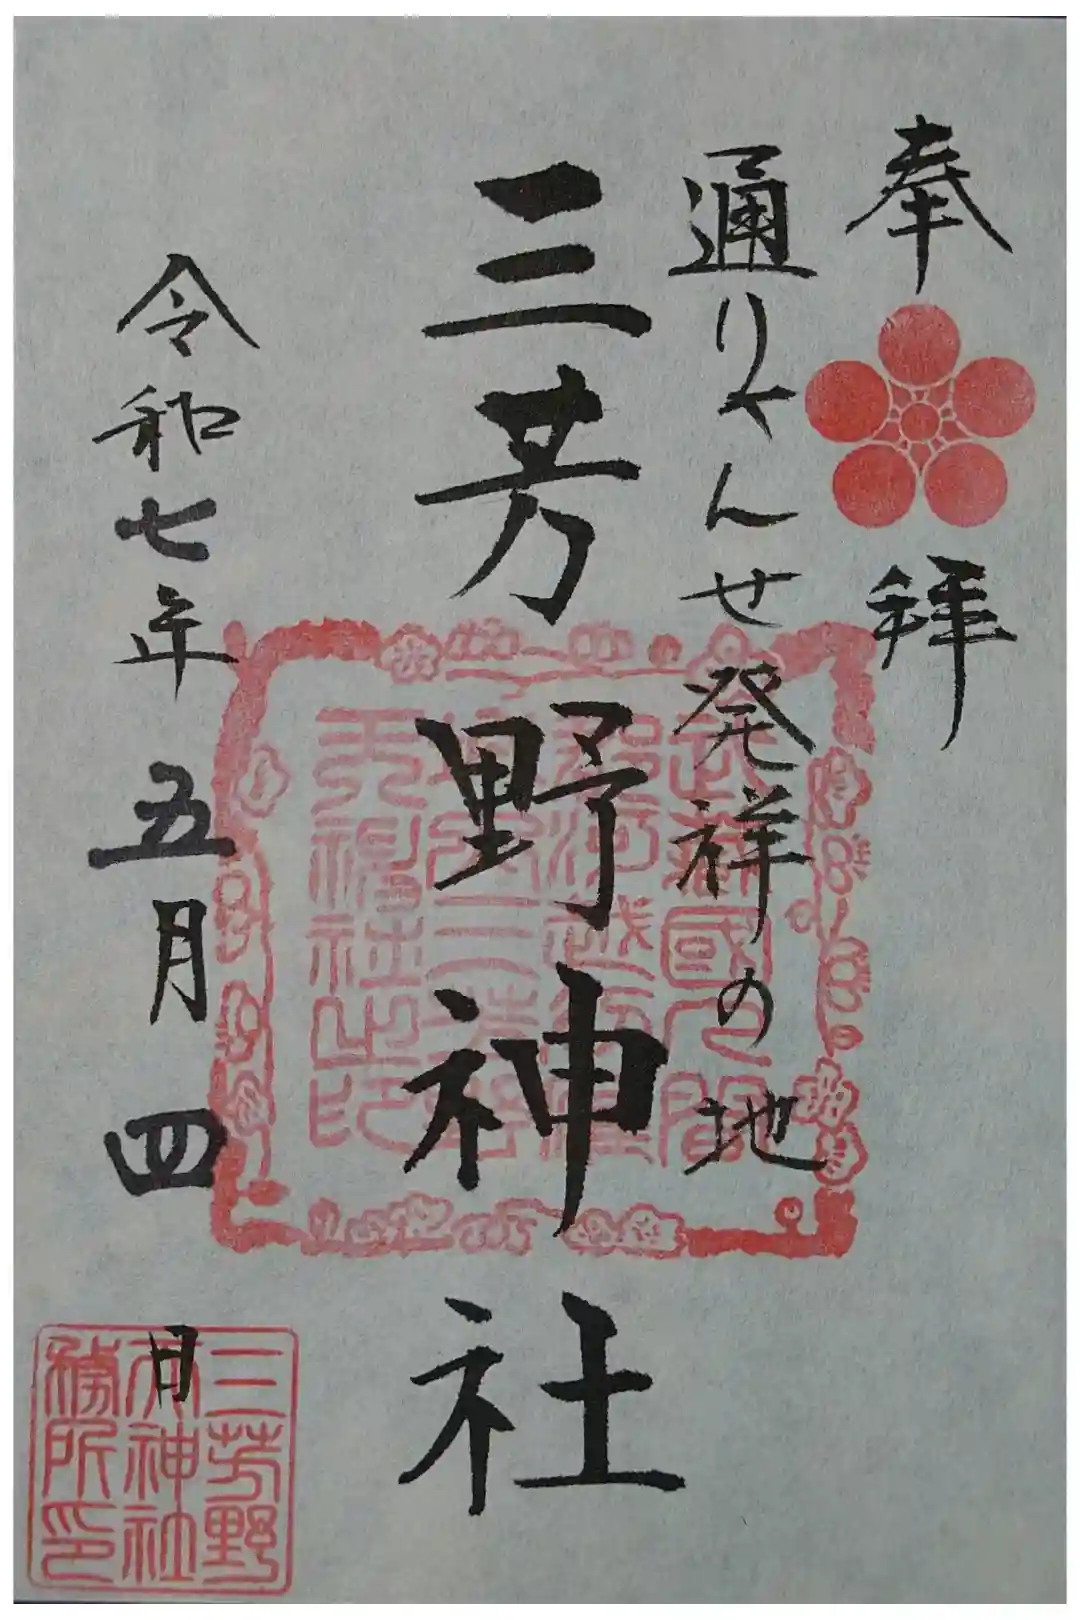 奉拝
通りゃんせ発祥の地
三芳野神社
令和七年五月四日
三芳野
天神社
務所印